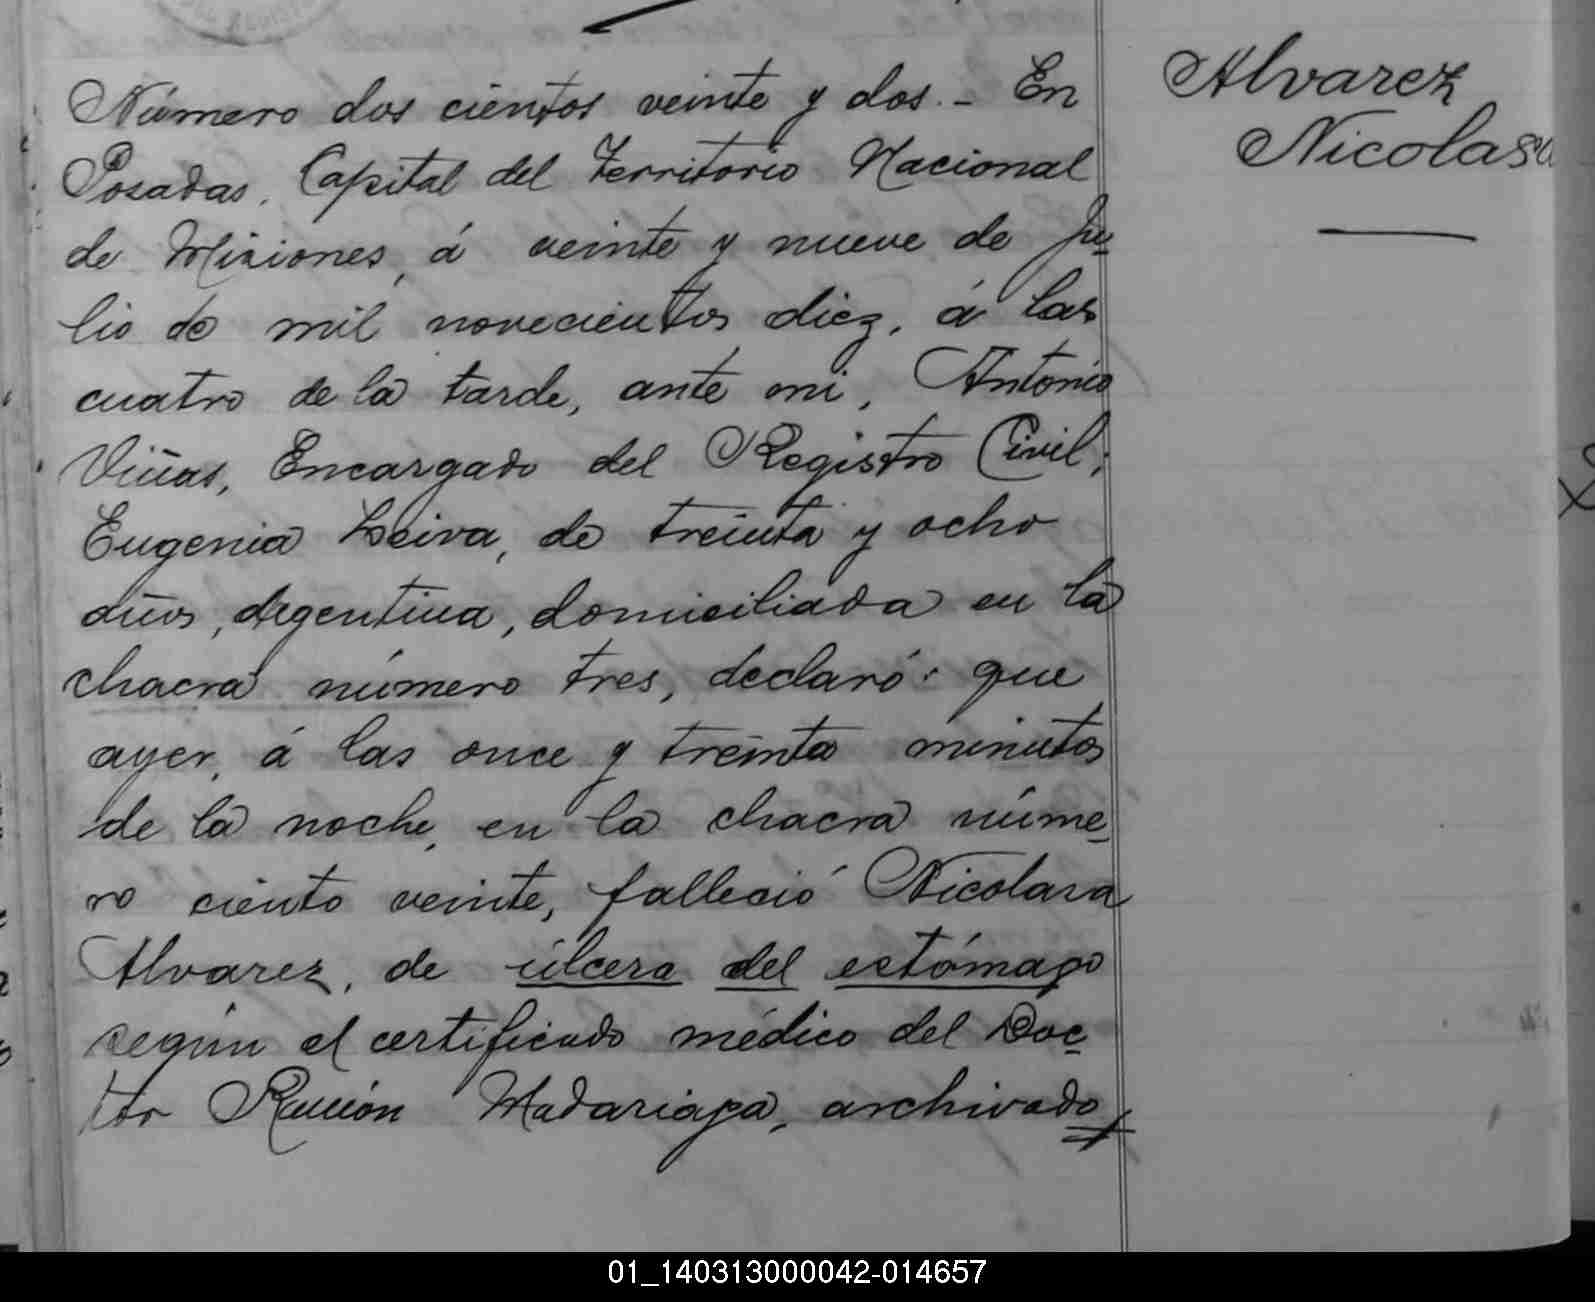 Número dos cientos veinte y dos. - En
Posadas, Capital del Territorio Nacional
de Misiones, á veinte y nueve de Ju-
lio de mil novecientos diez, á las
cuatro de la tarde, ante mi, Antonio
Viñas, Encargado del Registro Civil;
Eugenia Leiva, de treinta y ocho
años, argentina, domiciliada en la
chacra número tres, declaró: que
ayer, á las once y treinta minutos
de la noche, en la chacra núme-
ro ciento veinte, falleció Nicolasa
Alvarez, de úlcera del estómago
según el certificado médico del Doc-
tor Ramón Madariaga, archivado
Alvarez
Nicolasa
01_140313000042-014657